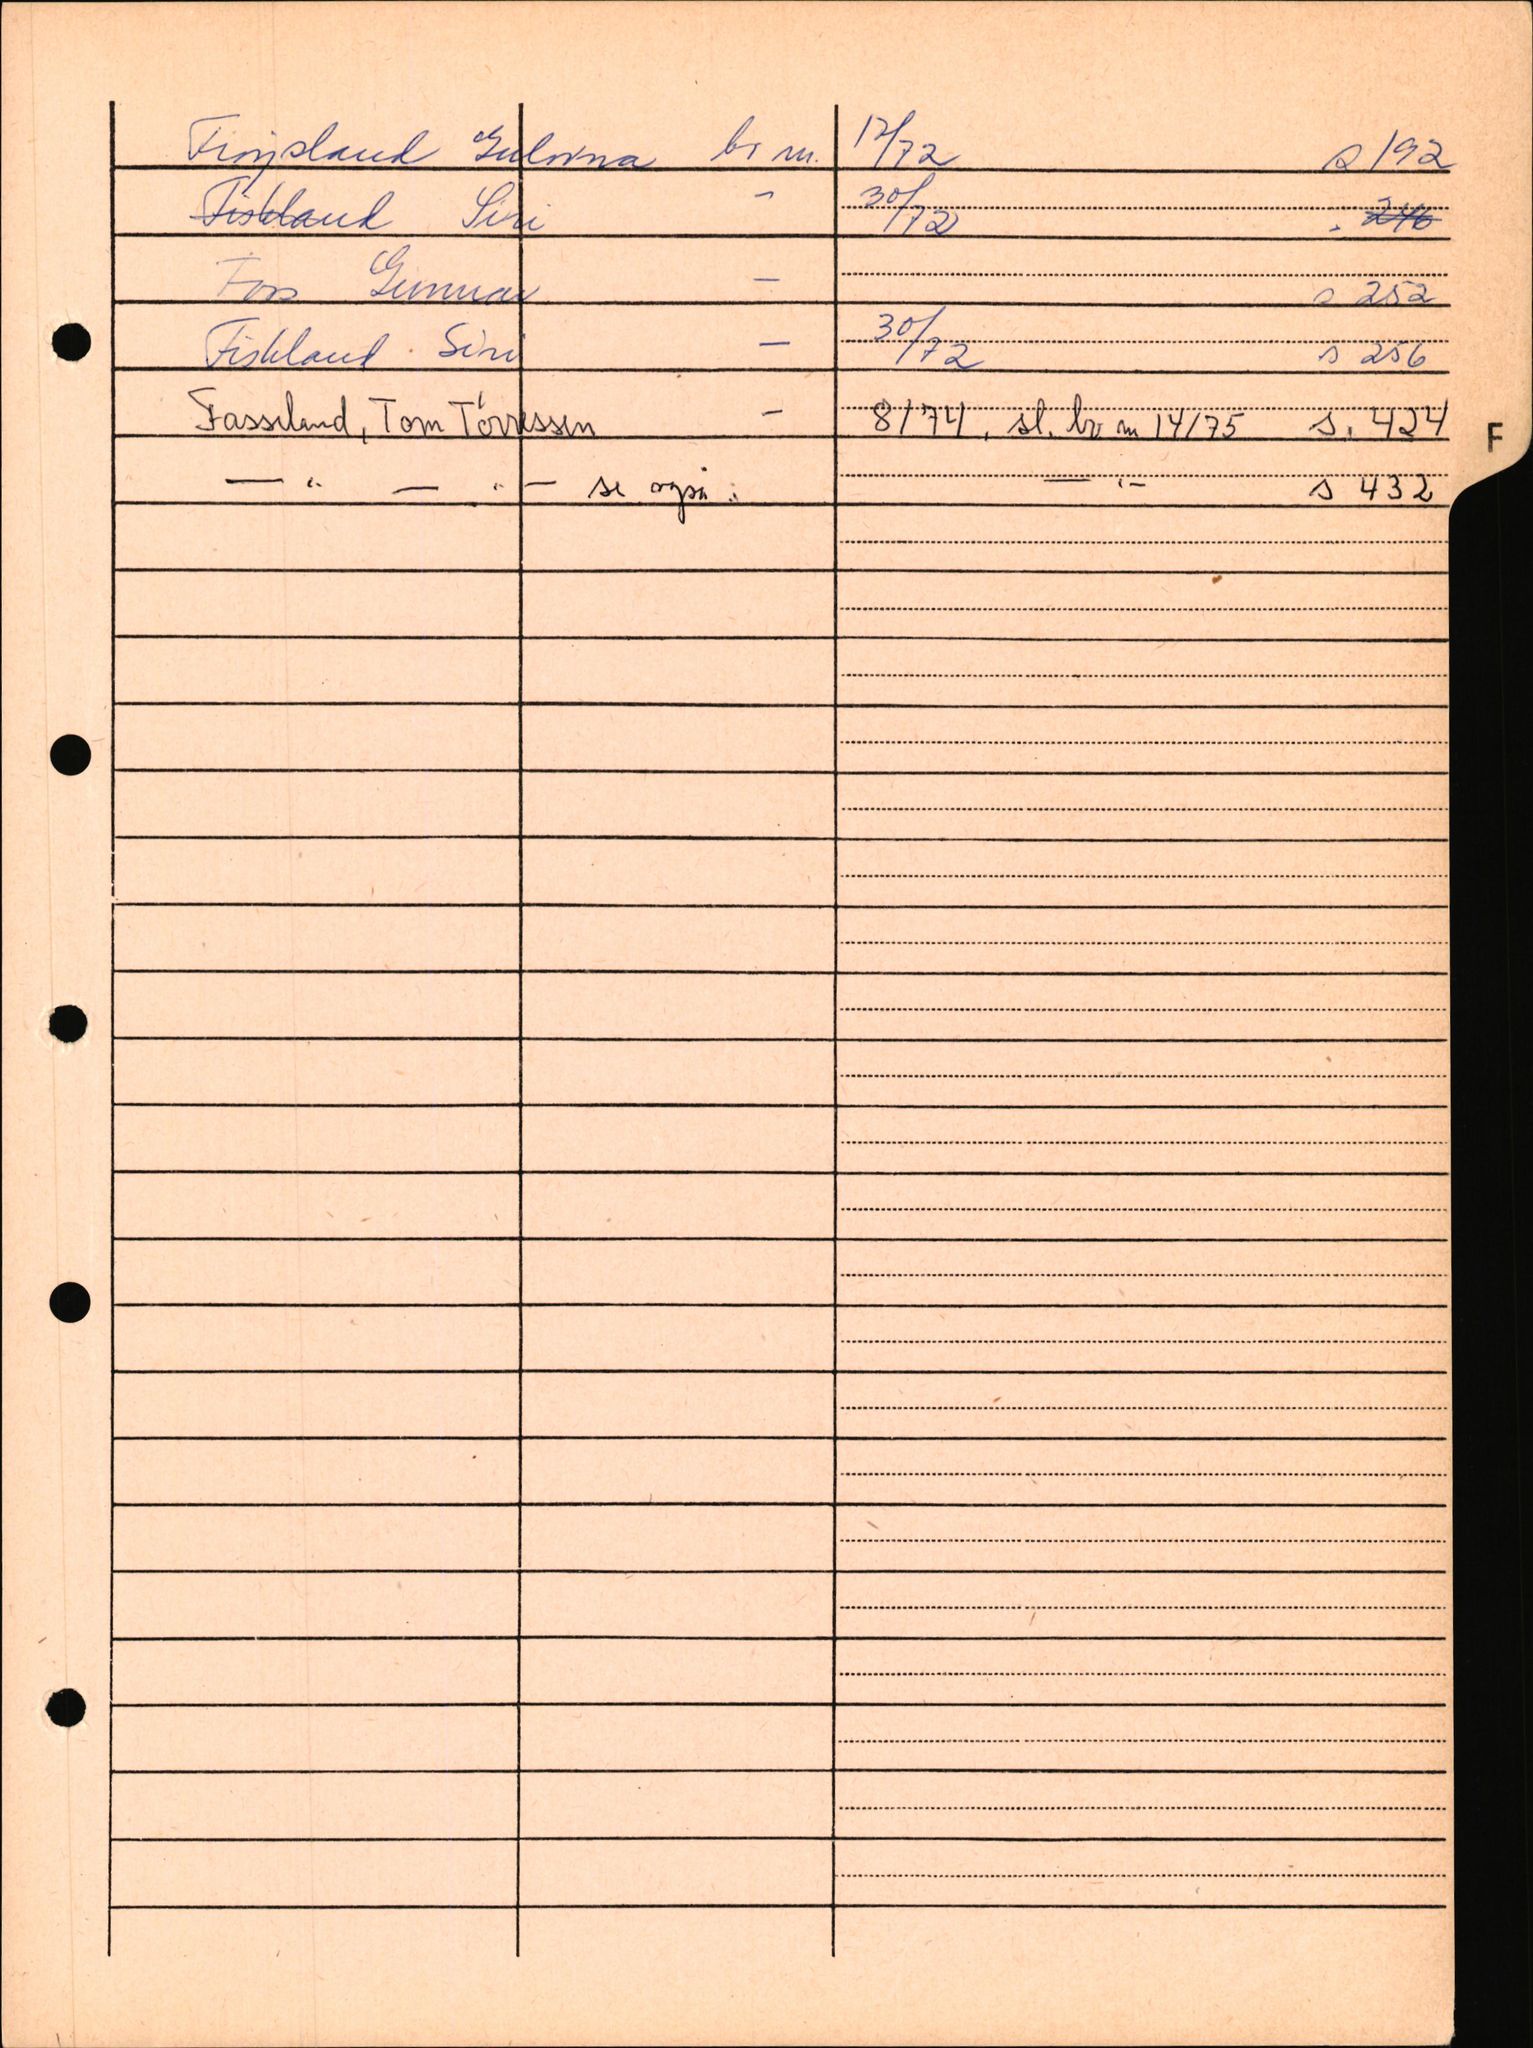 Finsland Gulovna br m. 12/72 s 192
Fiskland Siri " 30/72 s. 246
Foss Gunnar — s 252
Fiskland Siri — 30/72 s 256
Fasseland, Tom Tørressen — 8/74, sl. br m 14/75 s. 424
— " — " — se også: — " — s 432
F